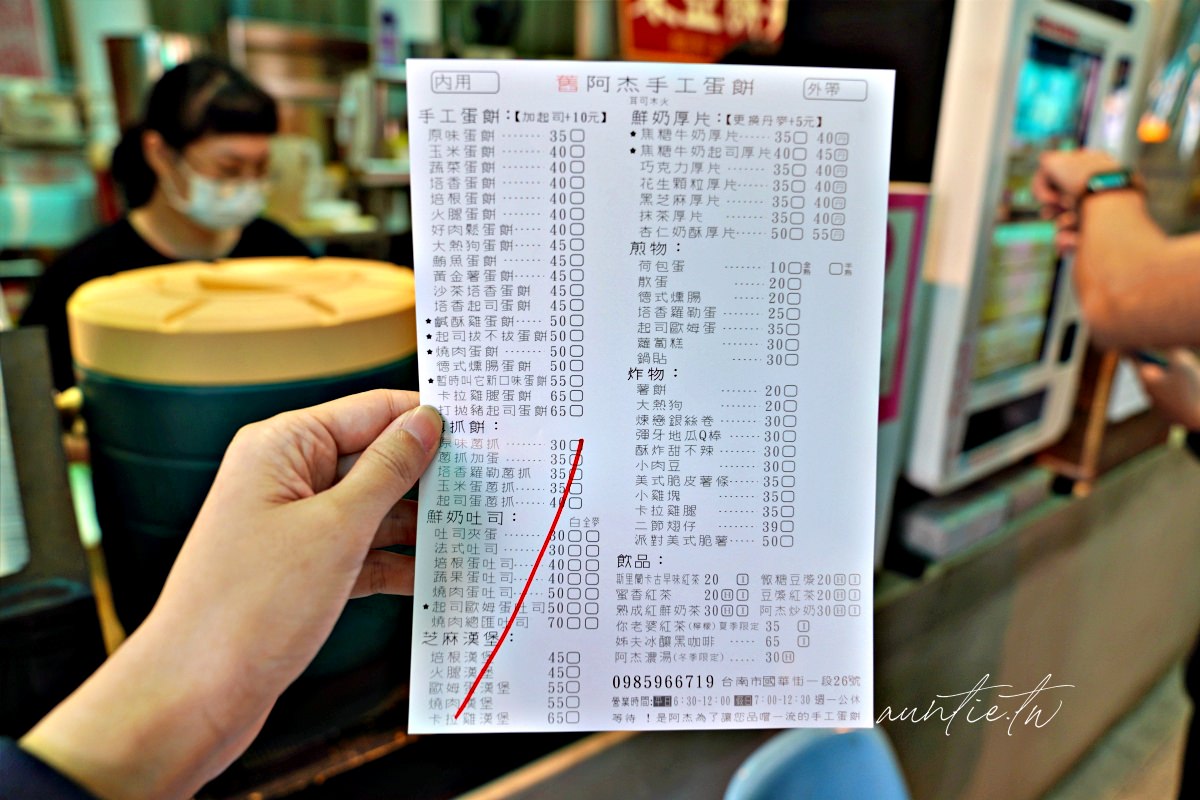 內用
舊阿杰手工蛋餅
外帶
耳司木火
手工蛋餅：【加起司+10元】
原味蛋餅 ······ 35
玉米蛋餅 ······ 40
蔬菜蛋餅 ······ 40
塔香蛋餅 ······ 40
培根蛋餅 ······ 40
火腿蛋餅 ······ 40
好肉鬆蛋餅···· 40
大熱狗蛋餅···· 45
鮪魚蛋餅 ······ 45
黃金薯蛋餅···· 45
沙茶塔香蛋餅 45
塔香起司蛋餅 45
★鹹酥雞蛋餅···· 50
★起司拔不拔蛋餅50
★燒肉蛋餅 ······ 50
德式燻腸蛋餅 50
★暫時叫它新口味蛋餅 55
卡拉雞腿蛋餅 65
打拋豬起司蛋餅65
抓餅：
原味蔥抓 ······ 30
蔥抓加蛋 ······ 35
塔香羅勒蔥抓 35
玉米蛋蔥抓···· 35
起司蛋蔥抓···· 40
鮮奶吐司： 白 全麥
吐司夾蛋 ······ 30
法式吐司 ······ 30
培根蛋吐司···· 40
蔬果蛋吐司···· 40
燒肉蛋吐司···· 50
★起司歐姆蛋吐司50
燒肉總匯吐司 70
芝麻漢堡：
培根漢堡 45
火腿漢堡 45
歐姆蛋漢堡 55
燒肉漢堡 55
卡拉雞漢堡 65
鮮奶厚片：【更換丹麥+5元】
★焦糖牛奶厚片····· 35 40
★焦糖牛奶起司厚片40 45
巧克力厚片 ······ 35 40
花生顆粒厚片····· 35 40
黑芝麻厚片 ······ 35 40
抹茶厚片 ······ 35 40
杏仁奶酥厚片····· 50 55
煎物：
荷包蛋 ······· 10 全熟 半熟
散蛋 ······· 20
德式燻腸 ······· 20
塔香羅勒蛋 ······· 25
起司歐姆蛋 ······· 35
蘿蔔糕 ······· 30
鍋貼 ······· 30
炸物：
薯餅 ······· 20
大熱狗 ······· 20
煉戀銀絲卷 ······· 30
彈牙地瓜Q棒 ······· 30
酥炸甜不辣 ······· 30
小肉豆 ······· 30
美式脆皮薯條····· 35
小雞塊 ······· 35
卡拉雞腿 ······· 35
二節翅仔 ······· 39
派對美式脆薯····· 50
飲品：
斯里蘭卡古早味紅茶 20 I 微糖豆漿20 H I
蜜香紅茶 20 H I 豆漿紅茶20 H I
熟成紅鮮奶茶30 H I 阿杰炒奶30 H I
你老婆紅茶(檸檬)夏季限定 35 I
姊夫冰釀黑咖啡 ····· 65 I
阿杰濃湯(冬季限定) ····· 30 H
0985966719 台南市國華街一段26號
營業時間:平日6:30-12:00 假日7:00-12:30 週一公休
等待 ！是阿杰為了讓您品嚐一流的手工蛋餅
auntie.tw